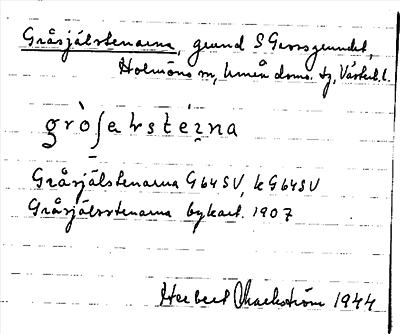 Gråsjälstenarna, grund S Gersgrundet,
Holmöns sn, Umeå doms. tg, Västerb. l.
grò∫ęḷstéi̯na
Gråsjälstenarna G64SV, kG64SV
Gråsjälsstenarna bykart. 1907
Herbert Markström 1944